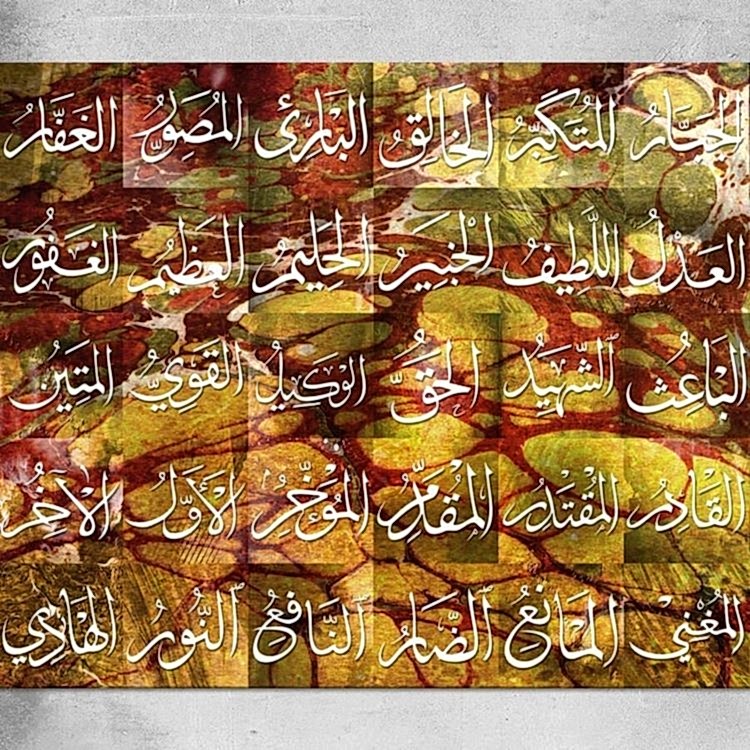 الجَبَّارُ المُتَكَبِّرُ الخَالِقُ البَارِئُ المُصَوِّرُ الغَفَّارُ
العَدْلُ اللَّطِيفُ الخَبِيرُ الحَلِيمُ العَظِيمُ الغَفُورُ
البَاعِثُ الشَّهِيدُ الحَقُّ الوَكِيلُ القَوِيُّ المَتِينُ
القَادِرُ المُقْتَدِرُ المُقَدِّمُ المُؤَخِّرُ الأَوَّلُ الآخِرُ
المُغْنِي المَانِعُ الضَّارُ النَّافِعُ النُّورُ الهَادِي